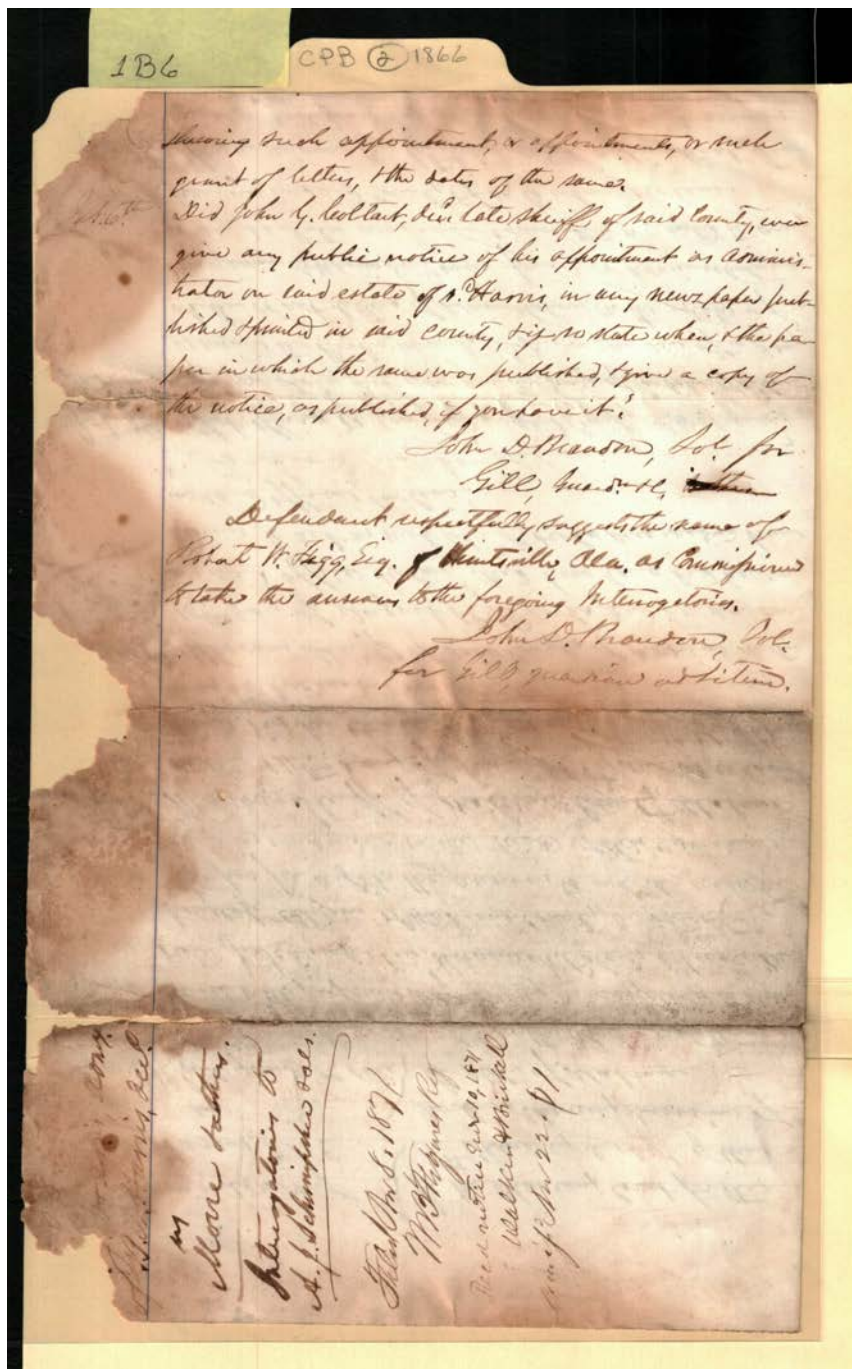 1B6
CPB 2 1866
shewing such appointment, or appointments, or such
grant of letters, & the dates of the same.
Did John G. Coltart, dec'd late sheriff of said County, ever
give any public notice of his appointment as adminis-
trator on said estate of sd. Harris, in any newspaper pub-
lished & printed in said county, & if so state when, & the pa-
per in which the same was published, & give a copy of
the notice, as published, if you have it?
John D. Brandon, Sol. for
Gill, Guardn. &c.
Defendant respectfully suggests the name of
Robert W. Figg, Esq. of Huntsville, Ala. as Commissioner
to take the answers to the foregoing Interrogatories.
John D. Brandon, Sol.
for Gill, guardian ad litem.
Harris, decd.
vs
Moore & others.
Interrogatories to
A. J. Schrimpsher & als.
Filed Nov 8, 1871
Reg
1871
Walker & Brickell
Nov 22. 71